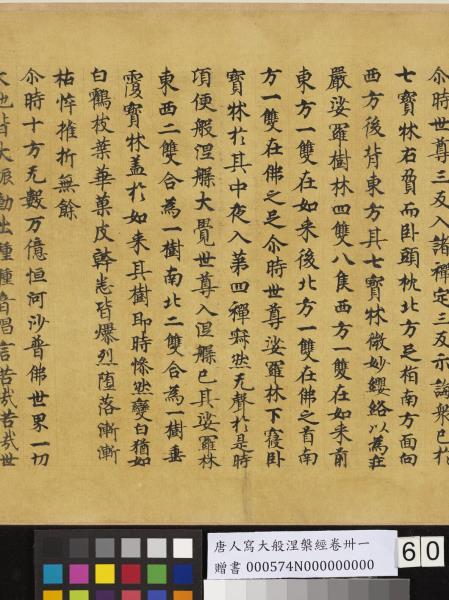 尒時世尊三反入諸禪定三反示誨衆已於
七寶牀右脅而卧頭枕北方足指南方面向
西方後背東方其七寶牀微妙纓絡以為莊
嚴娑羅樹林四雙八隻西方一雙在如来前
東方一雙在如来後北方一雙在佛之首南
方一雙在佛之足尒時世尊娑羅林下寢卧
寶牀於其中夜入第四禪寂然无聲於是時
項便般涅槃大覺世尊入涅槃已其娑羅林
東西二雙合為一樹南北二雙合為一樹垂
覆寶牀蓋於如来其樹即時慘然變白猶如
白鶴枝葉華菓皮幹悉皆爆烈墮落漸漸
枯悴摧折無餘
尒時十方无數万億恒河沙普佛世界一切
大地皆大振動出種種音唱言苦哉苦哉世
唐人寫大般涅槃經卷卅一
贈書 000574N000000000
60